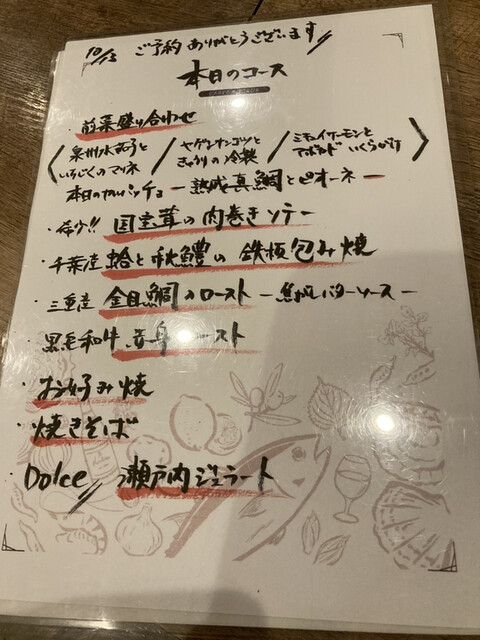 10/13 ご予約ありがとうございます//
本日のコース
・前菜盛り合わせ
〈泉州水茄子といちじくのマリネ / ヤゲンナンコツときゅうりの冷製 / ミキュイサーモンとアボカド いくらがけ〉
本日のカルパッチョ ー熟成真鯛とピオーネー
・国宝茸の肉巻きソテー
・千葉産 蛤と秋鱧の 鉄板包み焼
・三重産 金目鯛のロースト ー焦がしバターソースー
・黒毛和牛 ースト
・お好み焼
・焼きそば
・Dolce// 瀬戸内ジェラート